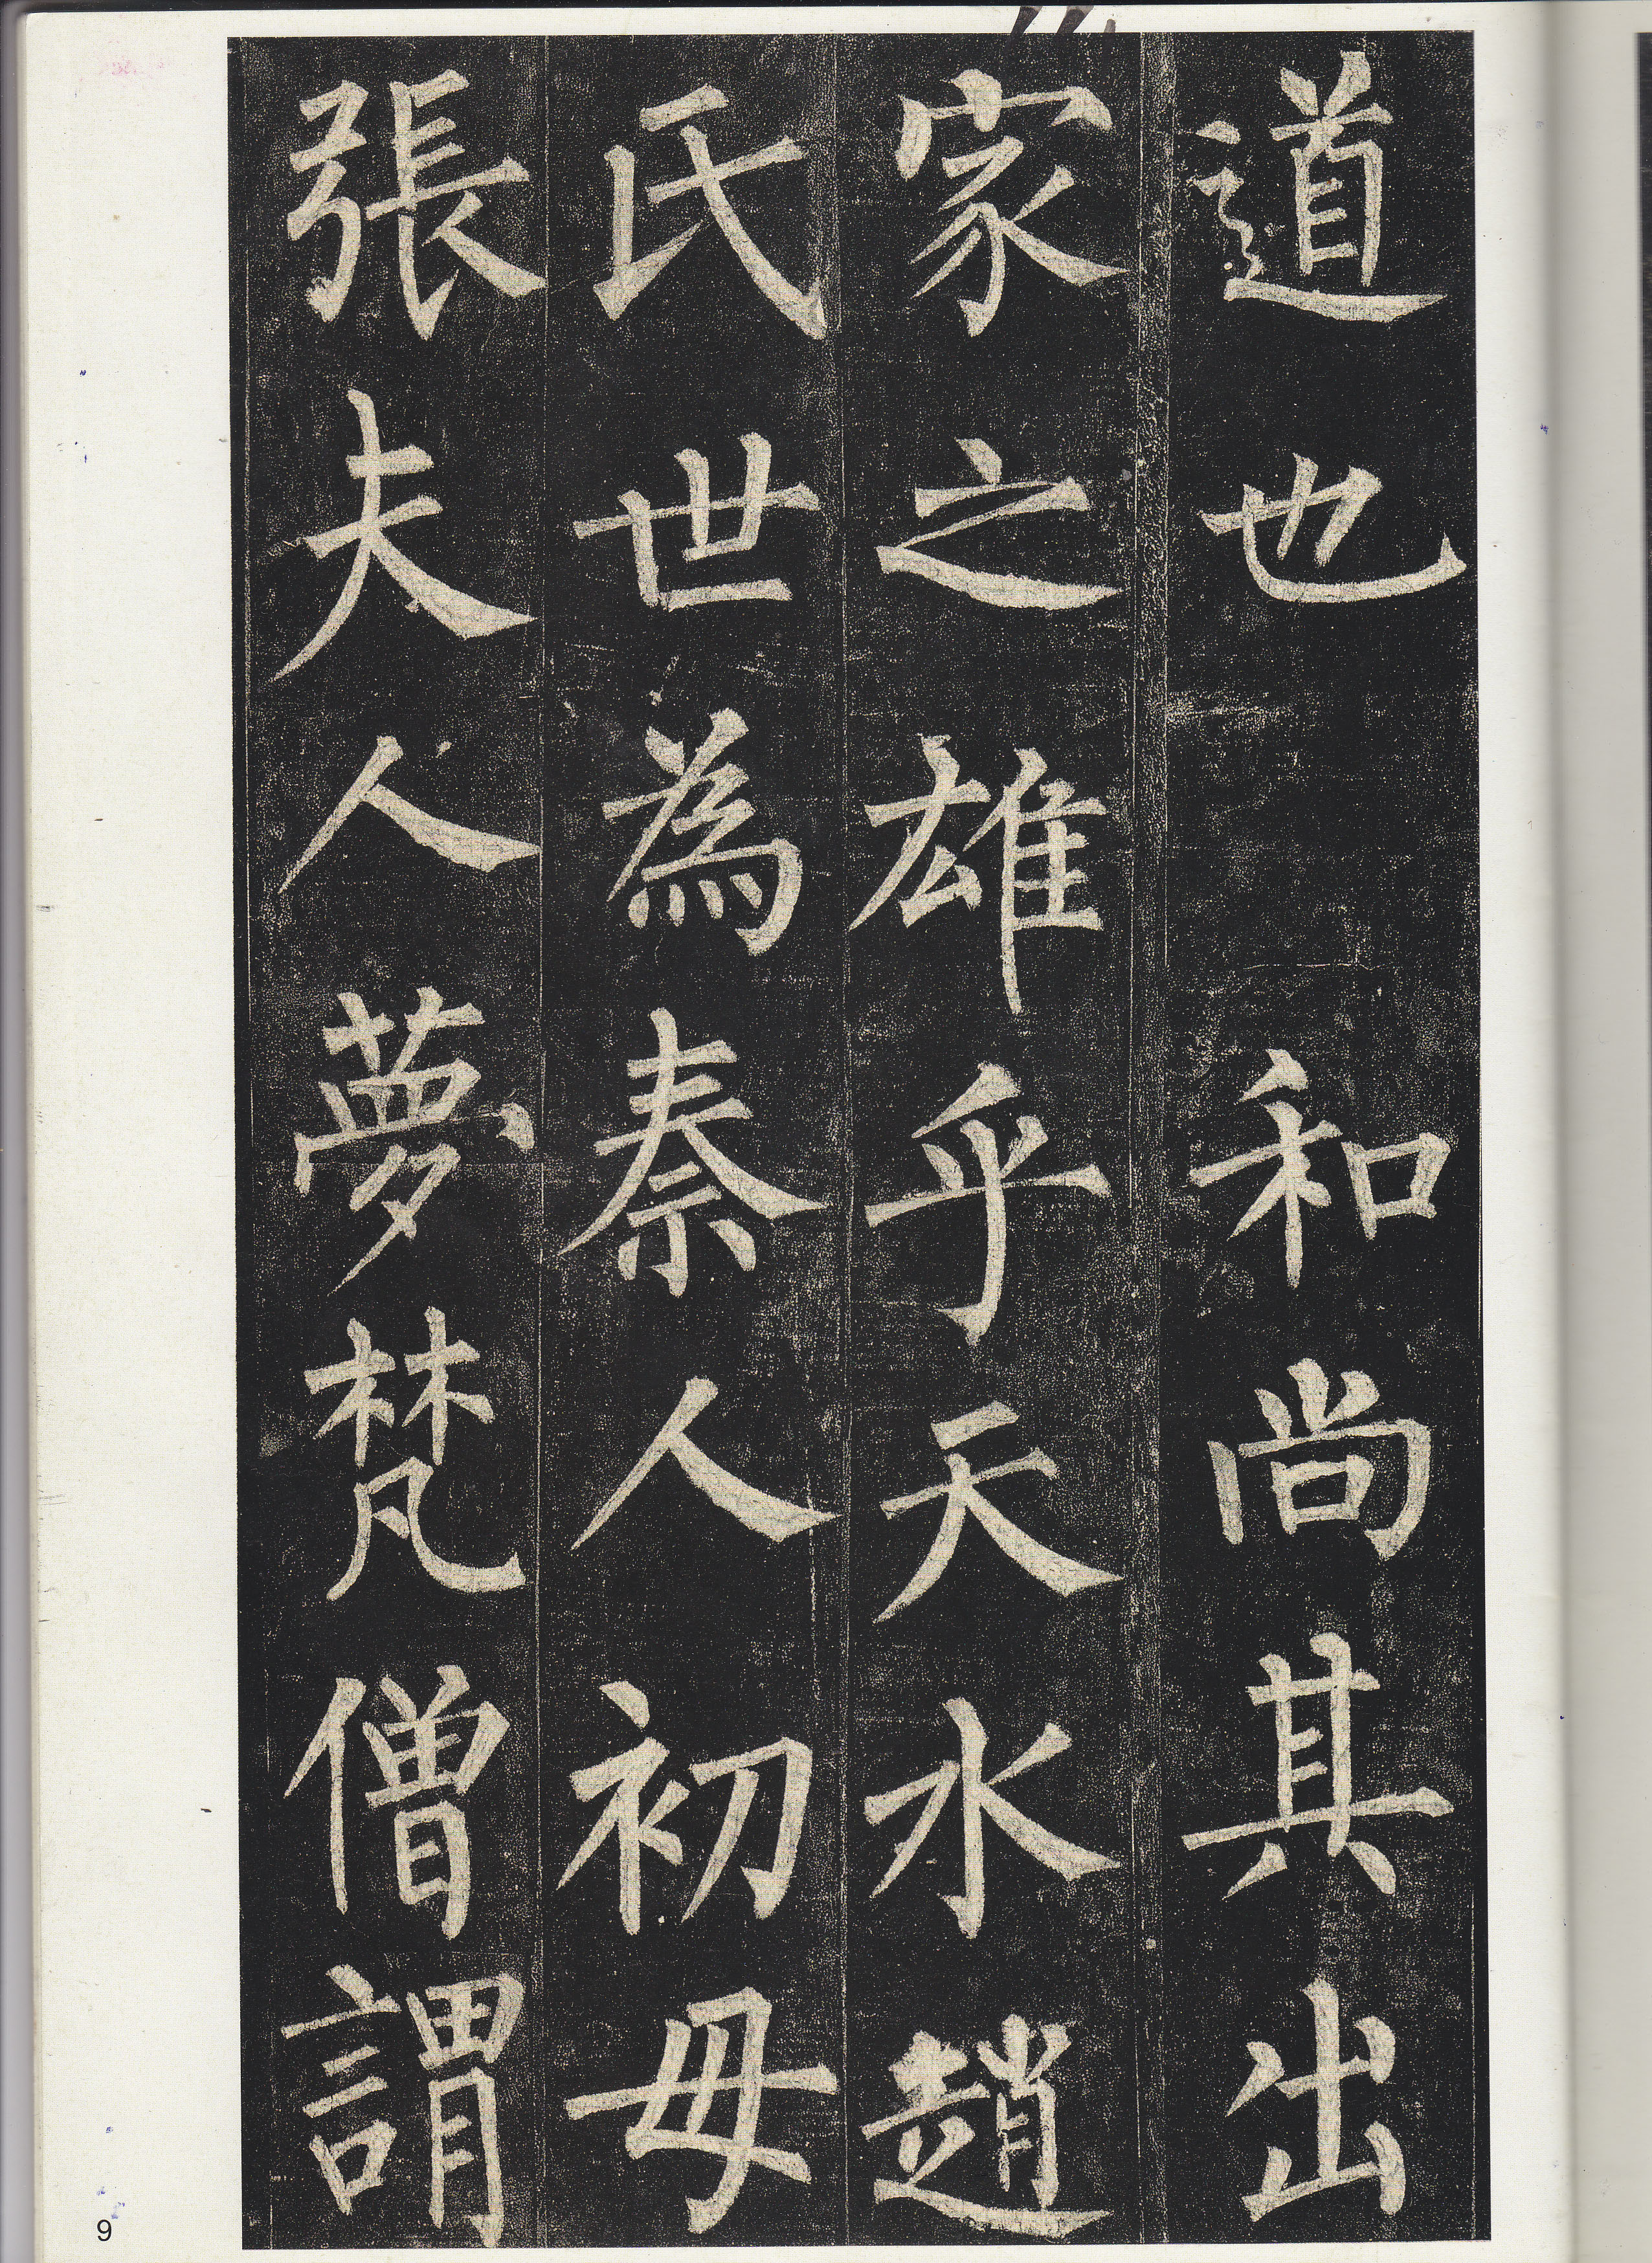 道也 和尚其出
家之雄乎天水趙
氏世為秦人初母
張夫人夢梵僧謂
9